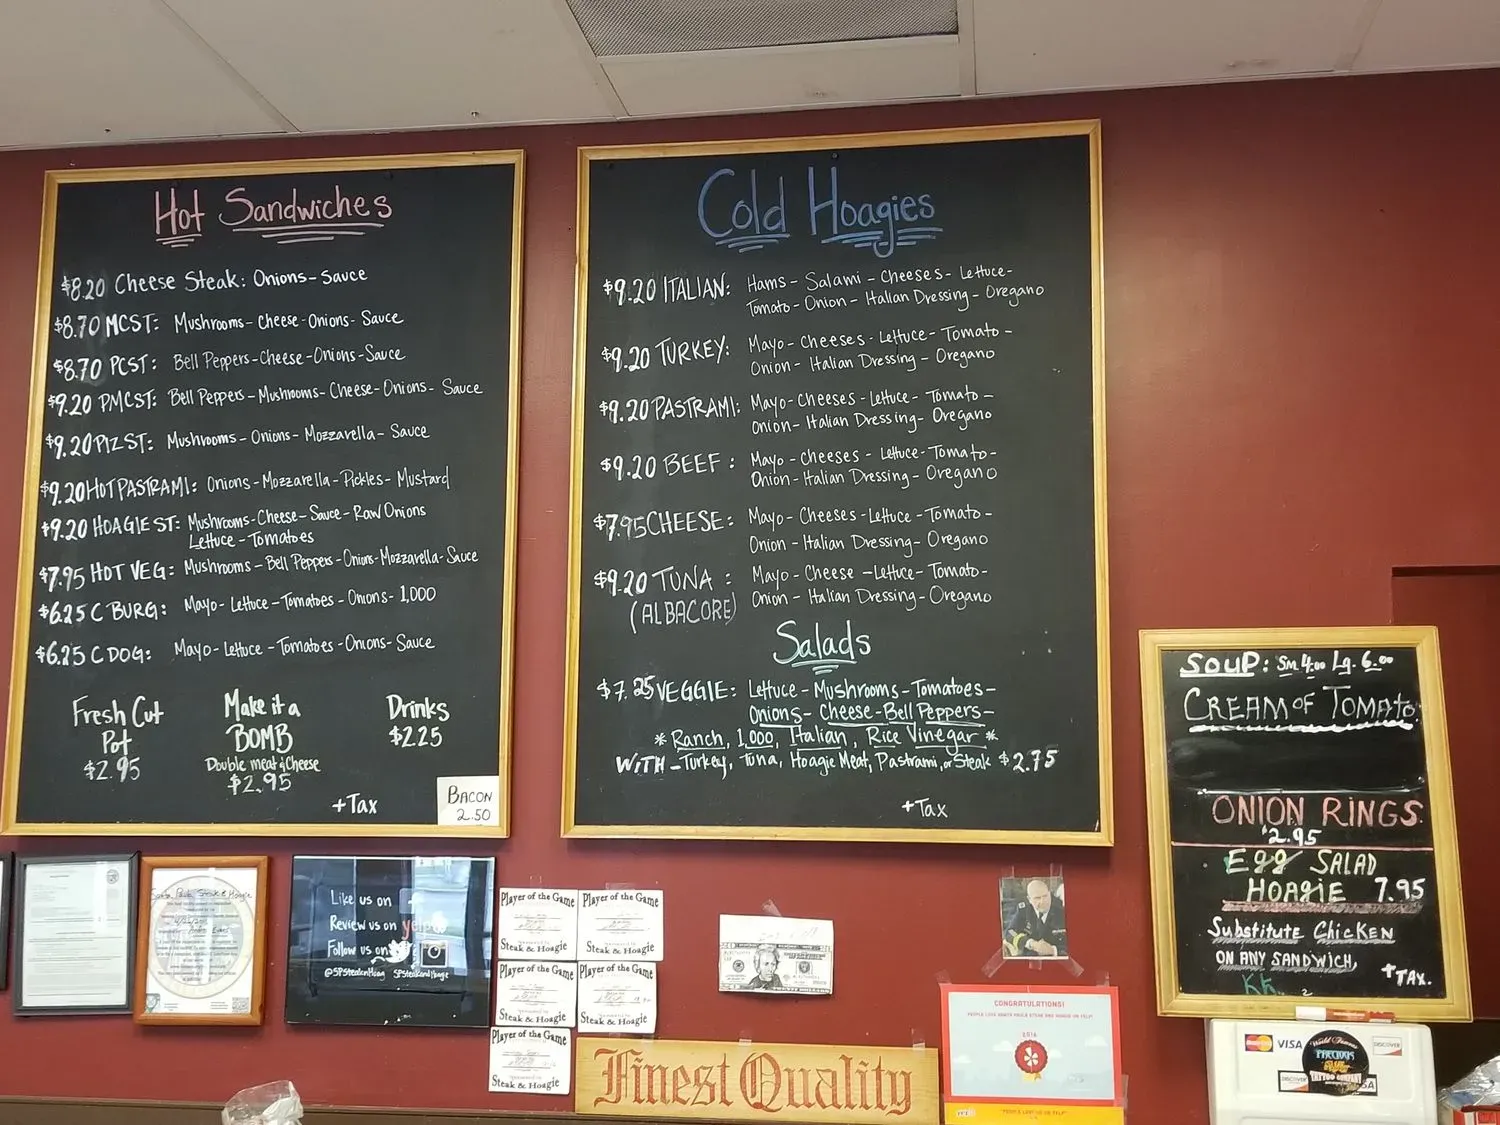 Hot Sandwiches
$8.20 Cheese Steak: Onions-Sauce
$8.70 MCST: Mushrooms-Cheese-Onions-Sauce
$8.70 PCST: Bell Peppers-Cheese-Onions-Sauce
$9.20 PMCST: Bell Peppers-Mushrooms-Cheese-Onions-Sauce
$9.20 PIZST: Mushrooms-Onions-Mozzarella-Sauce
$9.20 HOT PASTRAMI: Onions-Mozzarella-Pickles-Mustard
$9.20 HOAGIEST: Mushrooms-Cheese-Sauce-Raw Onions
Lettuce-Tomatoes
$7.95 HOT VEG: Mushrooms-Bell Peppers-Onions-Mozzarella-Sauce
$6.25 C BURG: Mayo-Lettuce-Tomatoes-Onions-1,000
$6.25 C DOG: Mayo-Lettuce-Tomatoes-Onions-Sauce
Fresh Cut
Pot
$2.95
Make it a
BOMB
Double meat & Cheese
$2.95
Drinks
$2.25
+Tax
BACON
2.50
Cold Hoagies
$9.20 ITALIAN: Hams-Salami-Cheeses-Lettuce-
Tomato-Onion-Italian Dressing-Oregano
$9.20 TURKEY: Mayo-Cheeses-Lettuce-Tomato-
Onion-Italian Dressing-Oregano
$9.20 PASTRAMI: Mayo-Cheeses-Lettuce-Tomato-
Onion-Italian Dressing-Oregano
$9.20 BEEF: Mayo-Cheeses-Lettuce-Tomato-
Onion-Italian Dressing-Oregano
$7.95 CHEESE: Mayo-Cheeses-Lettuce-Tomato-
Onion-Italian Dressing-Oregano
$9.20 TUNA: Mayo-Cheese-Lettuce-Tomato-
(ALBACORE) Onion-Italian Dressing-Oregano
Salads
$7.25 VEGGIE: Lettuce-Mushrooms-Tomatoes-
Onions-Cheese-Bell Peppers-
*Ranch, 1,000, Italian, Rice Vinegar*
WITH-Turkey, Tuna, Hoagie Meat, Pastrami, or Steak $2.75
+Tax
SOUP: Sm 4.00 Lg. 6.00
CREAM OF TOMATO
ONION RINGS
$2.95
Egg SALAD
HOAGIE 7.95
Substitute Chicken
ON ANY SANDWICH,
+TAX.
Santa Paula Steak & Hoagie
Like us on
Review us on yelp
Follow us on
@SPSteaknHoag SPSteakandHoagie
Player of the Game
Steak & Hoagie
Player of the Game
Steak & Hoagie
Player of the Game
Steak & Hoagie
Player of the Game
Steak & Hoagie
Player of the Game
Steak & Hoagie
Finest Quality
CONGRATULATIONS!
PEOPLE LOVE SANTA PAULA STEAK AND HOAGIE ON YELP!
2016
"PEOPLE LOVE US ON YELP"
MasterCard
VISA
DISCOVER
DISCOVER
World Famous
PRECIOUS
SLUT
TATTOO COMPANY